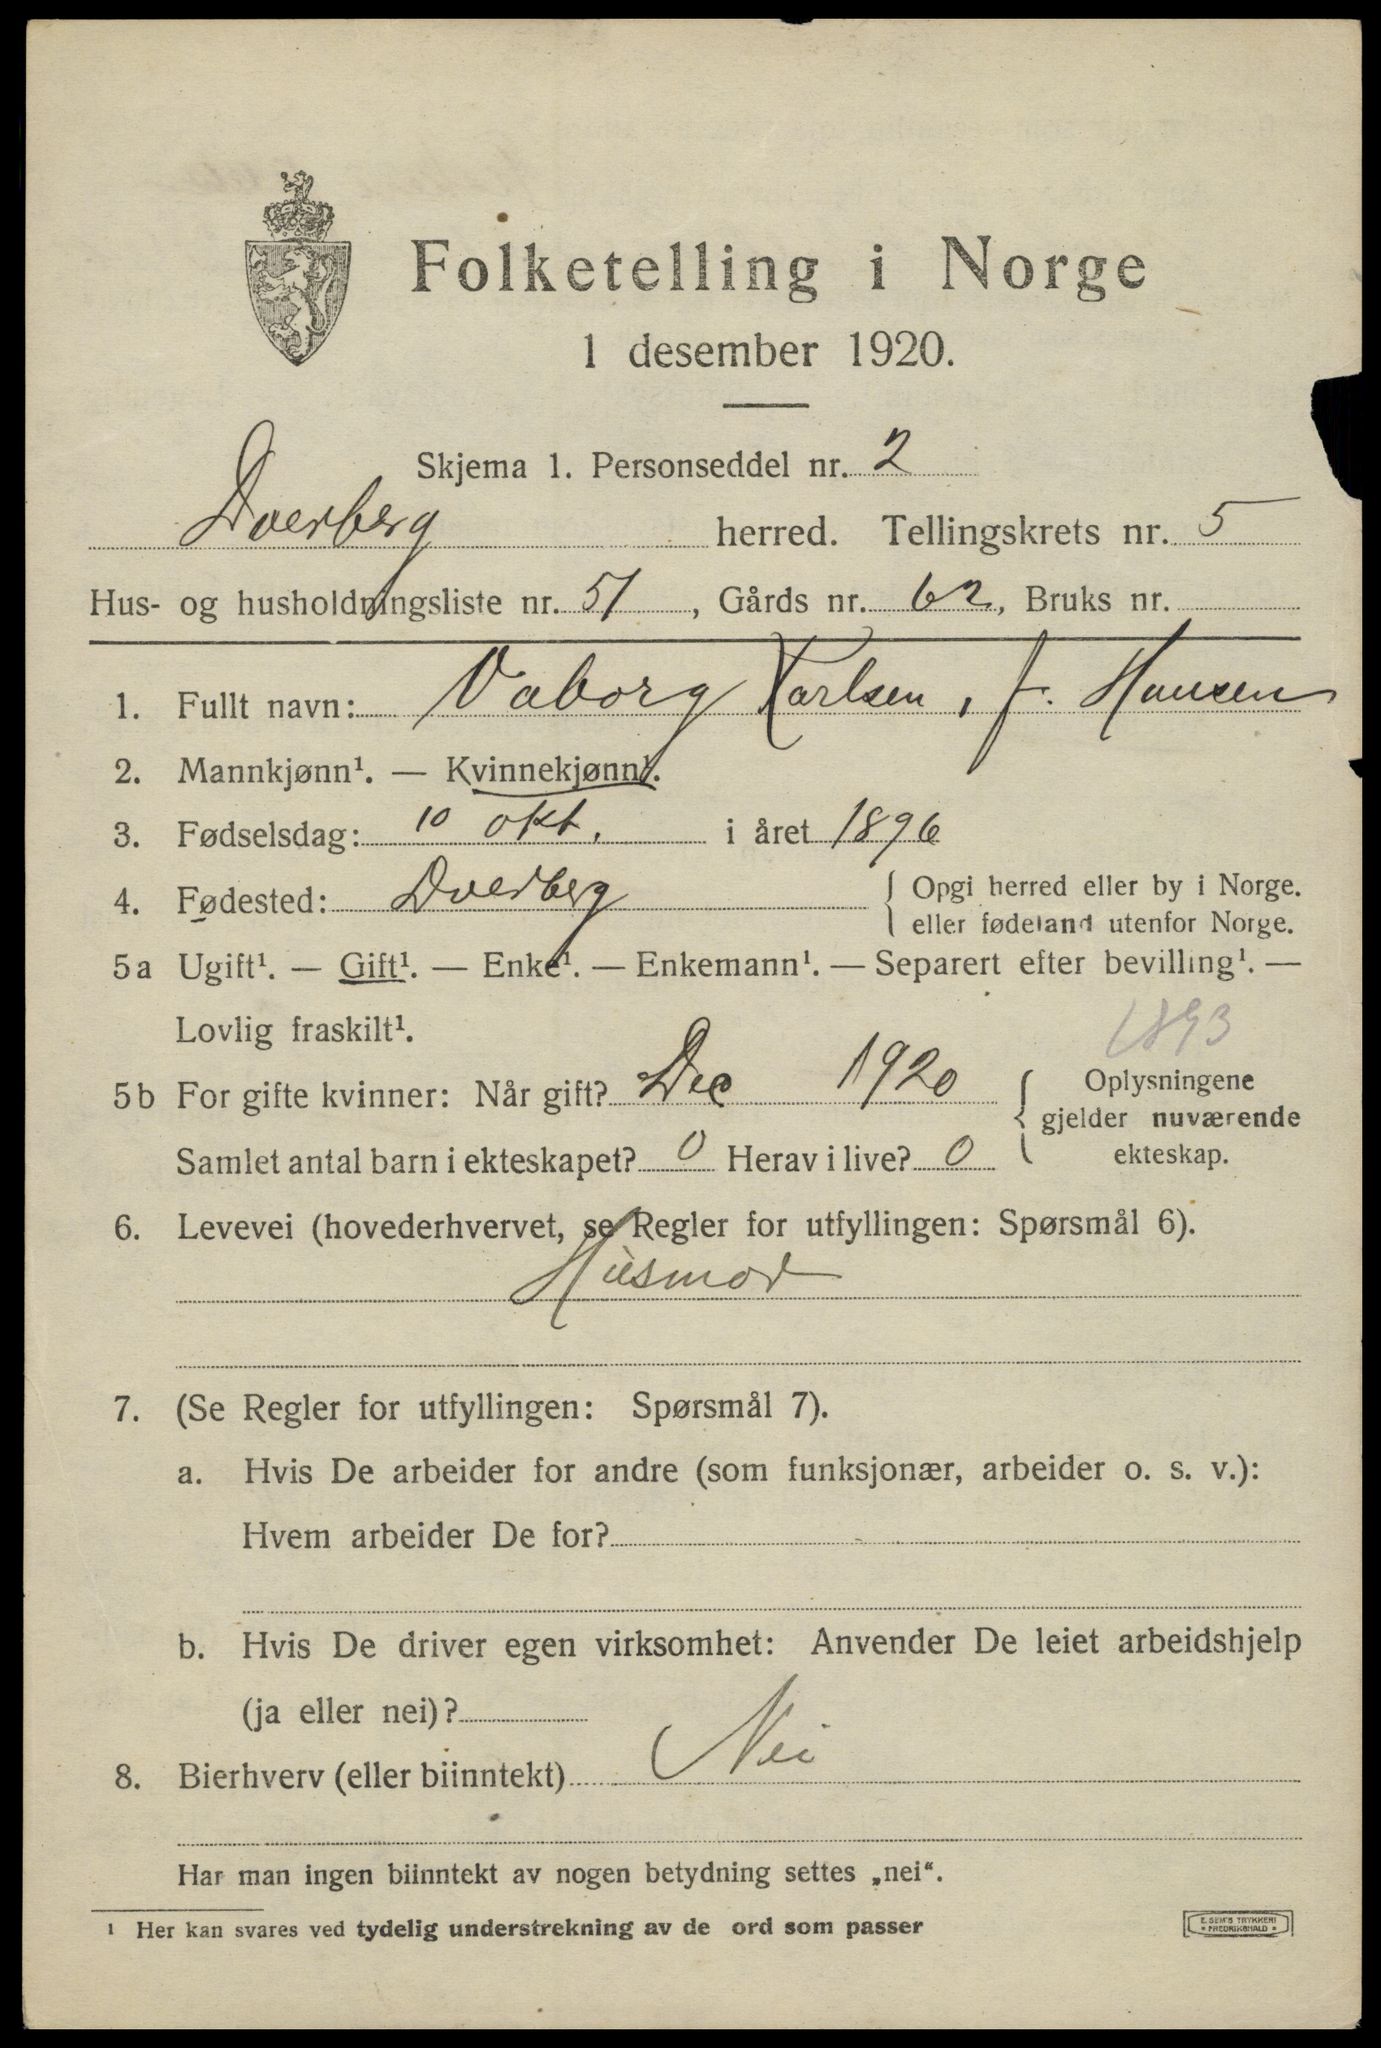 Folketelling i Norge
1 desember 1920.
Skjema 1. Personseddel nr. 2
Dverberg herred. Tellingskrets nr. 5
Hus- og husholdningsliste nr. 51, Gårds nr. 62, Bruks nr.
1. Fullt navn: Valborg Karlsen, f. Hansen
2. Mannkjønn¹. — Kvinnekjønn¹.
3. Fødselsdag: 10 okt. i året 1896
4. Fødested: Dverberg { Opgi herred eller by i Norge.
eller fødeland utenfor Norge.
5a Ugift¹. — Gift¹. — Enke¹. — Enkemann¹. — Separert efter bevilling¹. —
Lovlig fraskilt¹.
1893
5b For gifte kvinner: Når gift? Dec 1920
Samlet antal barn i ekteskapet? 0 Herav i live? 0
Oplysningene
gjelder nuværende
ekteskap.
6. Levevei (hovederhvervet, se Regler for utfyllingen: Spørsmål 6).
Husmor
7. (Se Regler for utfyllingen: Spørsmål 7).
a. Hvis De arbeider for andre (som funksjonær, arbeider o. s. v.):
Hvem arbeider De for?
b. Hvis De driver egen virksomhet: Anvender De leiet arbeidshjelp
(ja eller nei)?
8. Bierhverv (eller biinntekt) Nei
Har man ingen biinntekt av nogen betydning settes „nei“.
¹ Her kan svares ved tydelig understrekning av de ord som passer
E. SEM'S TRYKKERI
* FREDRIKSHALD *